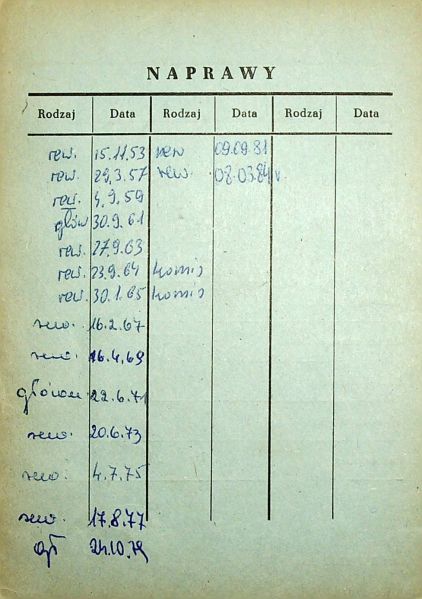 NAPRAWY
Rodzaj Data Rodzaj Data Rodzaj Data
rew. 15.11.53 rew 09.09.81
rew. 29.3.57 rew. 08.03.84 r.
rew. 4.9.59
głów 30.9.61
rew. 27.9.63
rew. 23.9.64 komis
rew. 30.1.65 komis
rew. 16.2.67
rew. 16.4.69
główn 22.6.71
rew. 20.6.73
rew. 4.7.75
rew. 17.8.77
gł 24.10.79